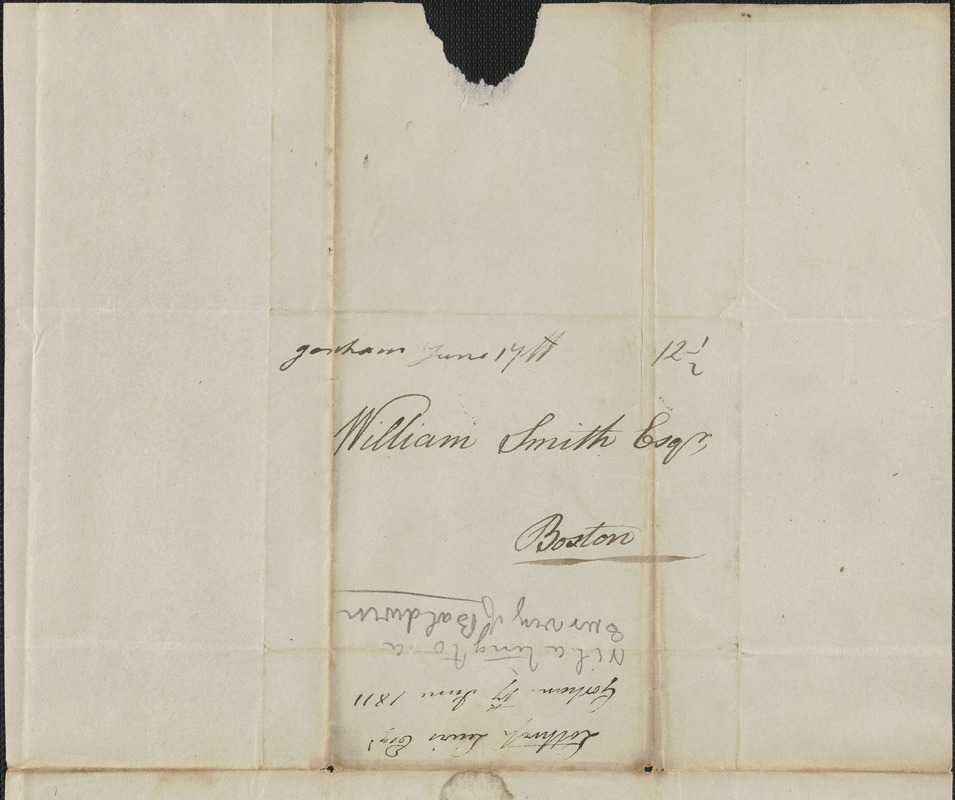 gorham June 17th 12 1/2
William Smith Esqr
Boston
Lothrop Lewis Esqr
Gorham 17 June 1811
Relating to a
Survey of Baldwin